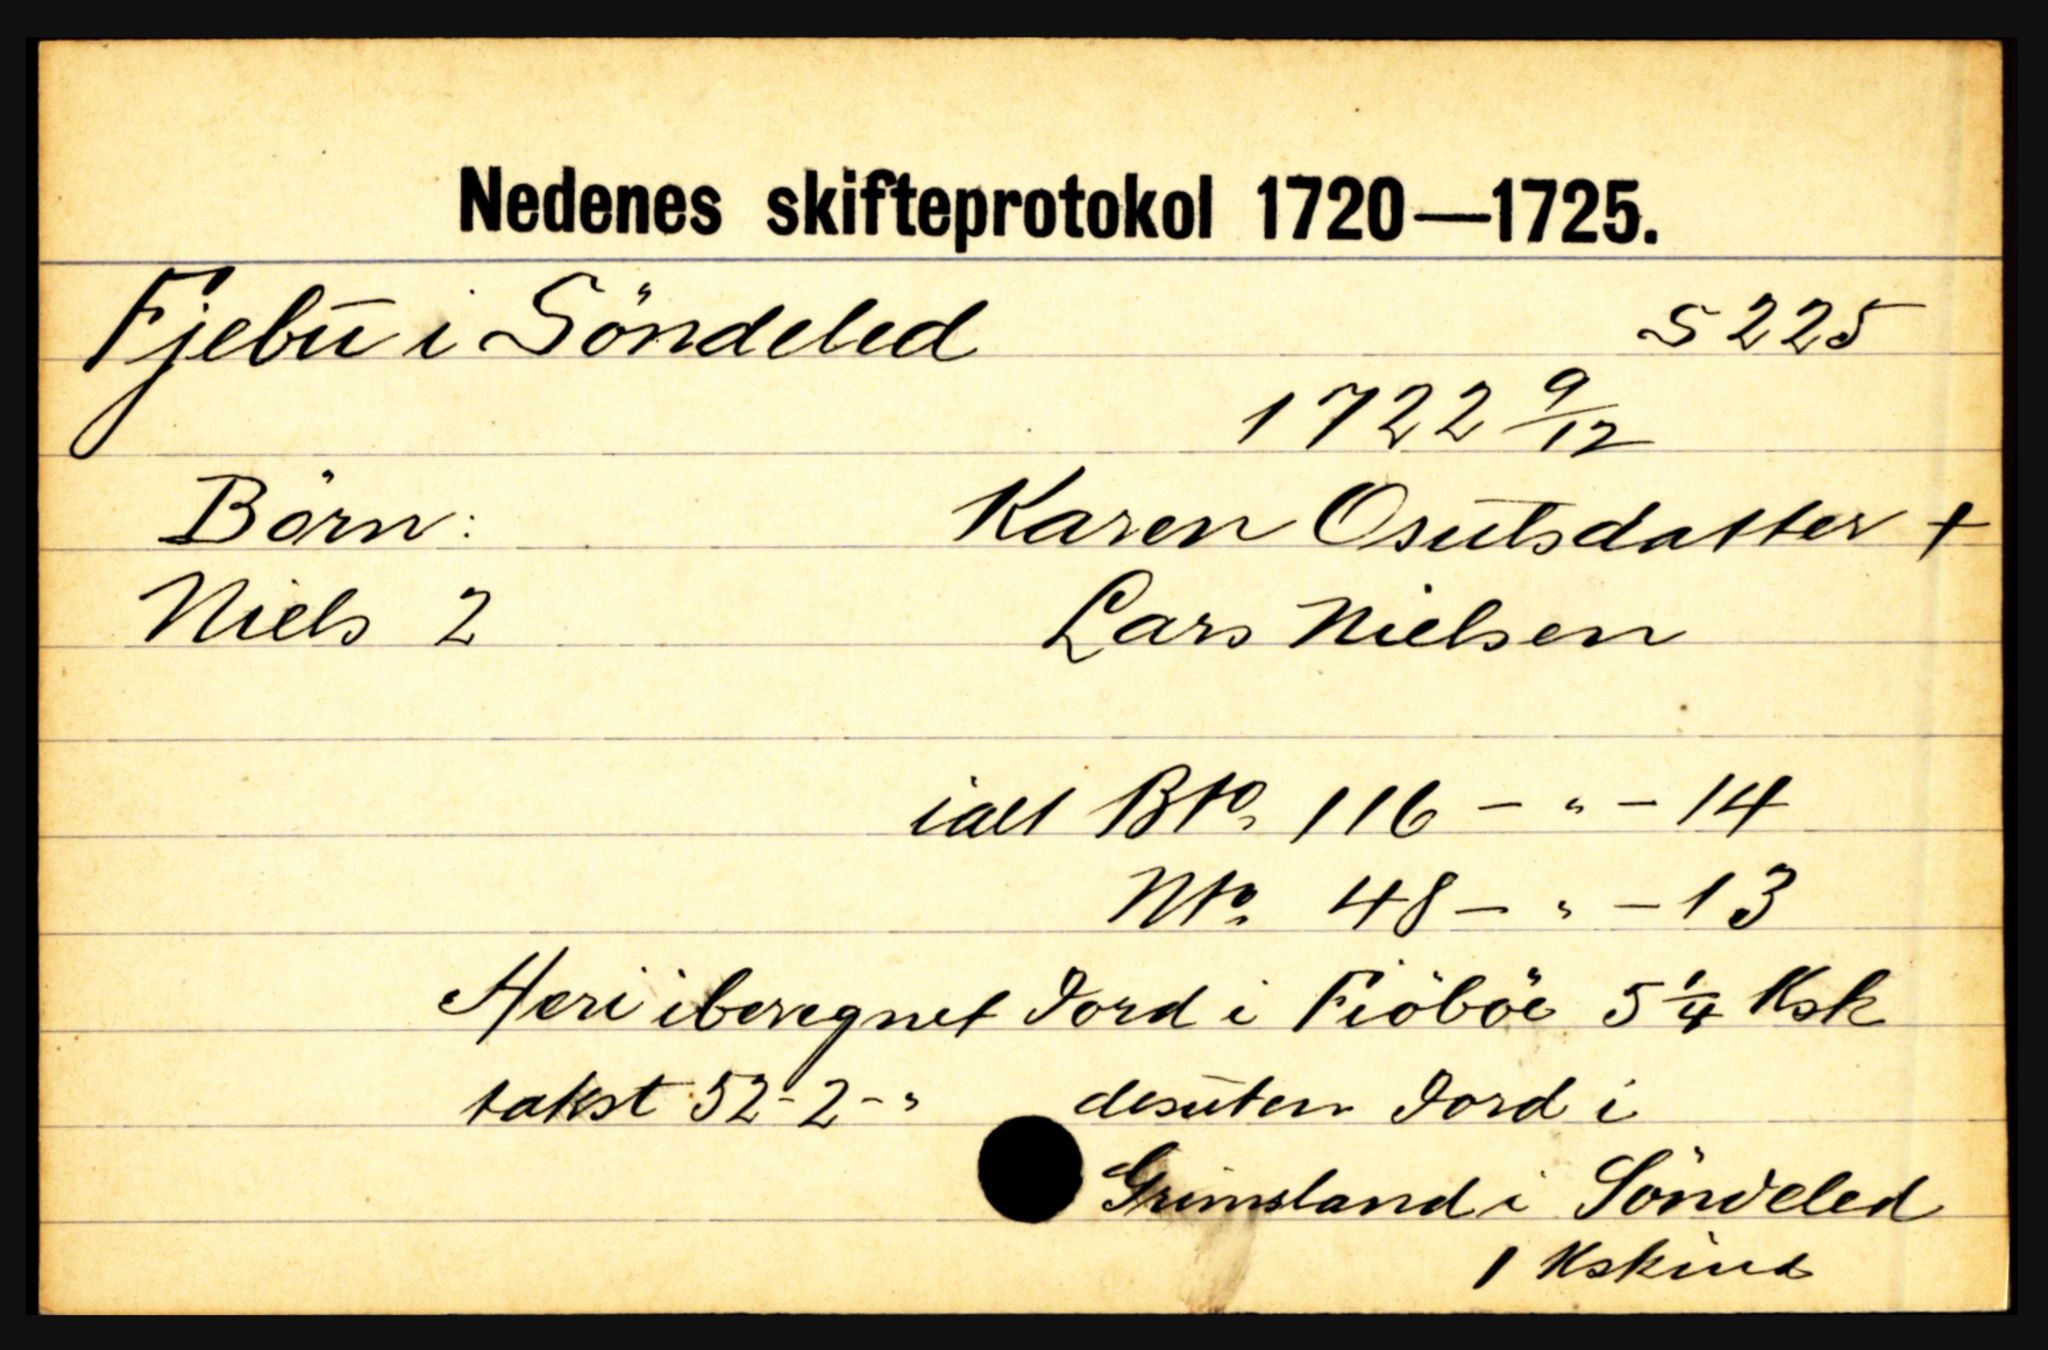 Nedenes skifteprotokol 1720—1725.
Fjebū i Söndeled S 225
1722 9/12
Börn: Karen Osūlsdatter +
Niels 2 Lars Nielsen
ialt Bto. 116 - " - 14
Nto. 48 - " - 13
Heri iberegnet Jord i Fiöböe 5 1/4 Ksk
takst 52-2-" desūten Jord i
Grimsland i Söndeled
1 Kskind